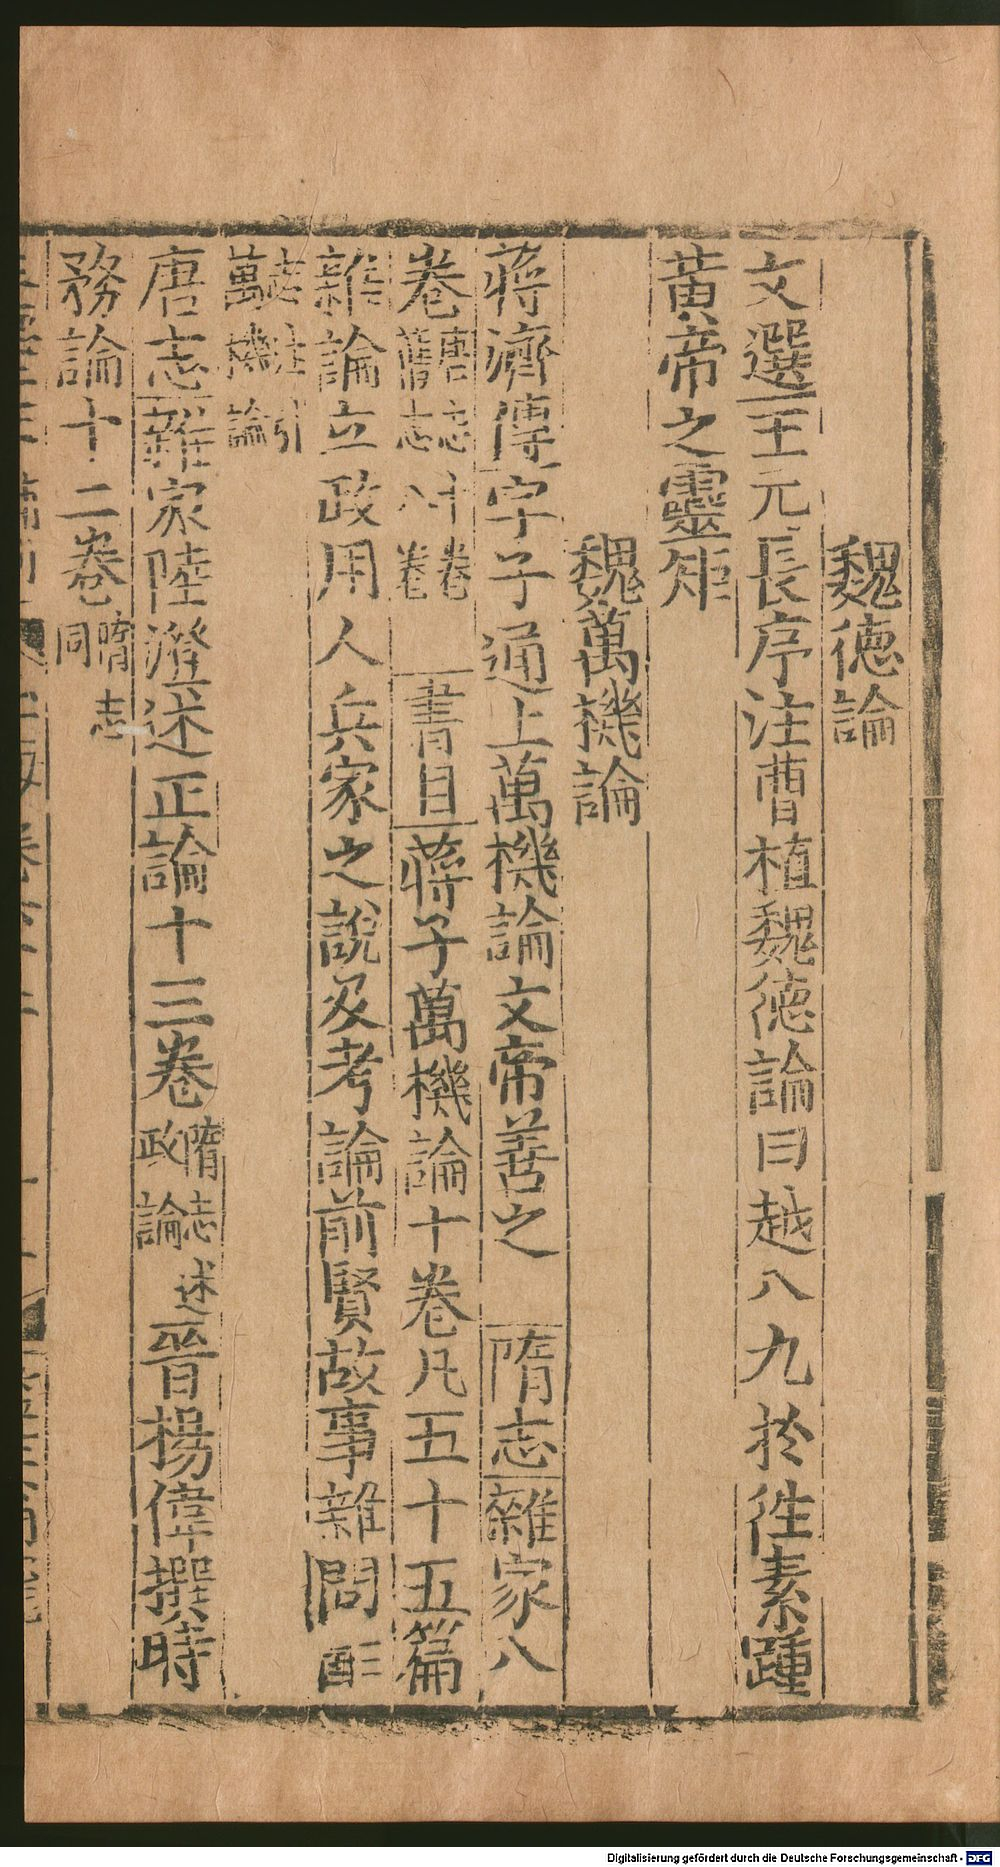 魏德論
文選王元長序注曹植魏德論曰越八九於徃素踵
黄帝之靈矩
魏萬機論
蔣濟傳字子通上萬機論文帝善之 隋志雜家八
卷唐志十卷舊志八卷 書目蔣子萬機論十卷凡五十五篇
雜論立政用人兵家之說及考論前賢故事雜問
志注引萬機論
唐志雜家陸澄述正論十三卷隋志述政論晉楊偉撰時
務論十二卷隋志同
Digitalisierung gefördert durch die Deutsche Forschungsgemeinschaft - DFG